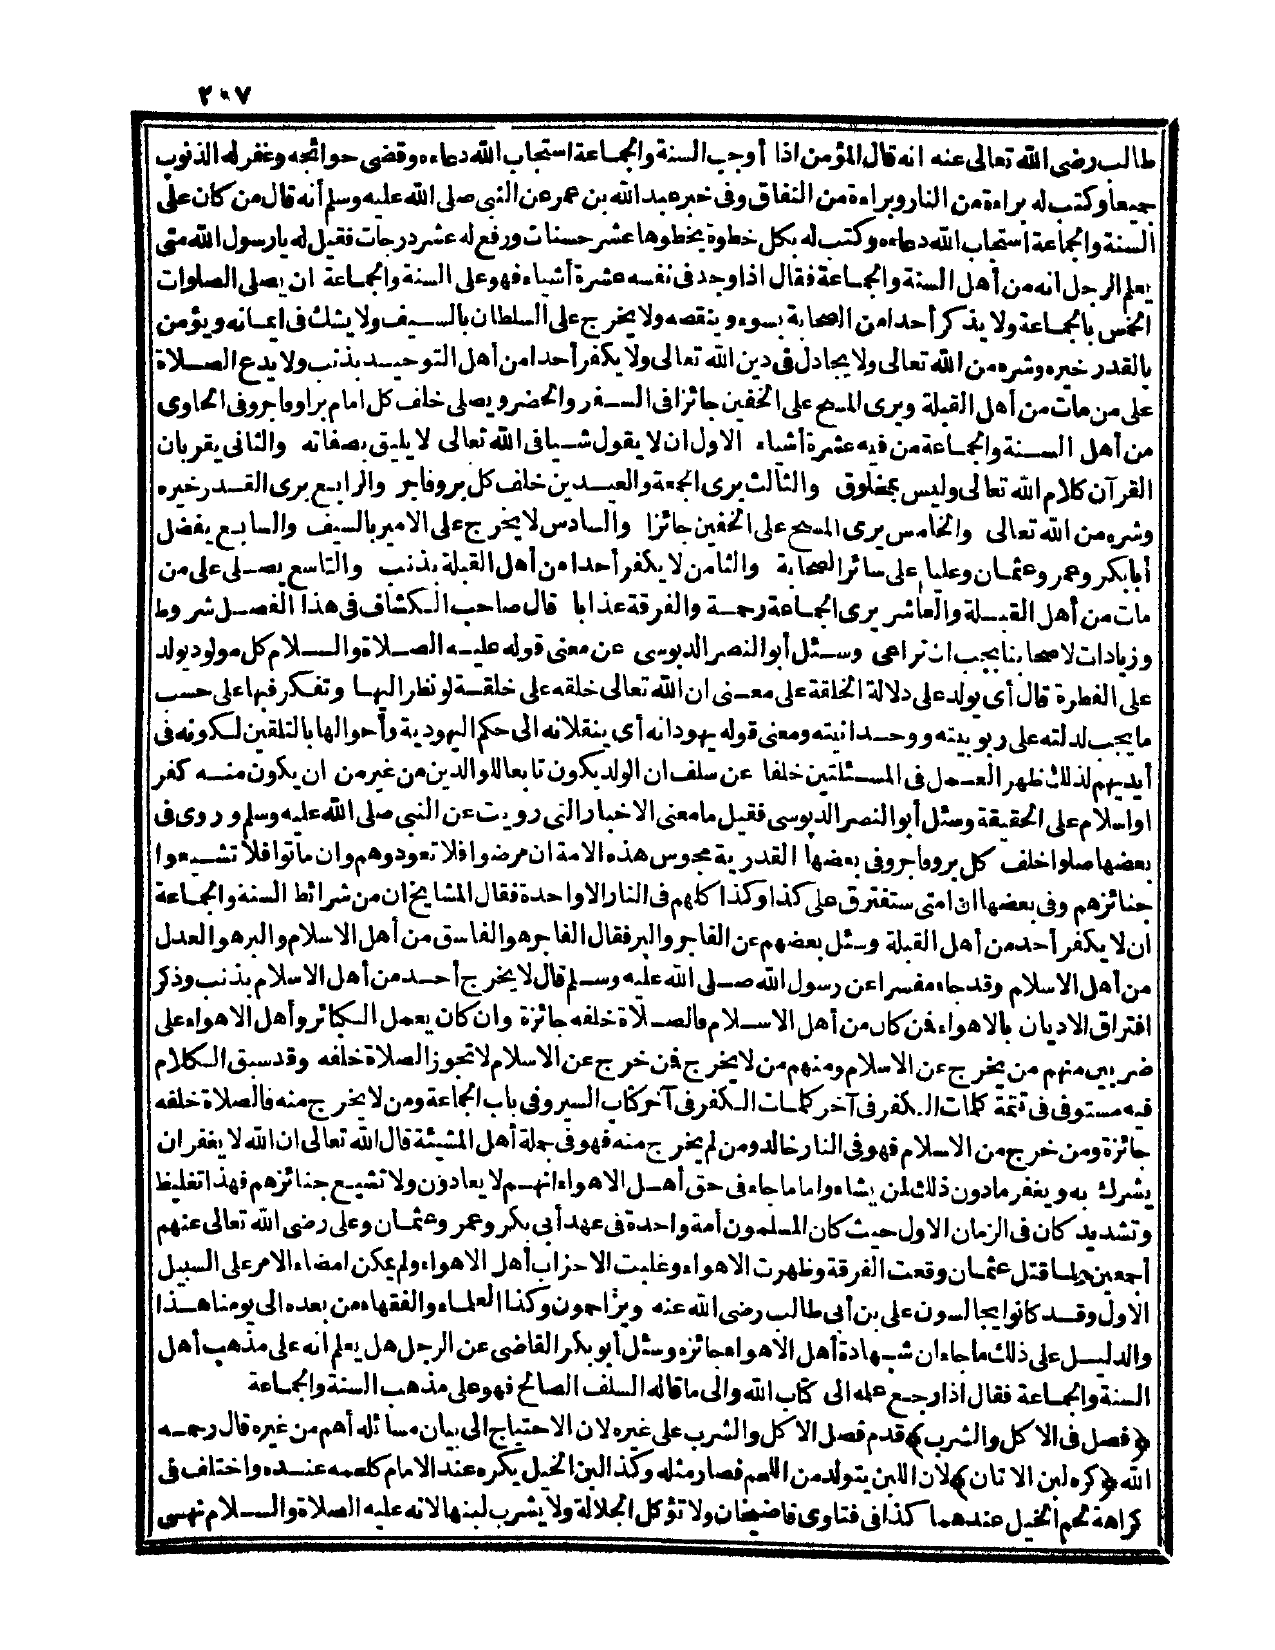 ٢٠٧
طالب رضى الله تعالى عنه انه قال المؤمن اذا أوجب السنة والجماعة استجاب الله دعاءه وقضى حوائجه وغفر له الذنوب
جميعا وكتب له براءة من النار وبراءة من النفاق وفى خبر عبد الله بن عمر عن النبى صلى الله عليه وسلم أنه قال من كان على
السنة والجماعة استجاب الله دعاءه وكتب له بكل خطوة يخطوها عشر حسنات ورفع له عشر درجات فقيل له يا رسول الله متى
يعلم الرجل انه من أهل السنة والجماعة فقال اذا وجد فى نفسه عشرة أشياء فهو على السنة والجماعة ان يصلى الصلوات
الخمس بالجماعة ولا يذكر أحدا من الصحابة بسوء وينقصه ولا يخرج على السلطان بالسيف ولا يشك فى ايمانه ويؤمن
بالقدر خيره وشره من الله تعالى ولا يجادل فى دين الله تعالى ولا يكفر أحدا من أهل التوحيد بذنب ولا يدع الصلاة
على من مات من أهل القبلة ويرى المسح على الخفين جائزا فى السفر والحضر ويصلى خلف كل امام برا وفاجر وفى الحاوى
من أهل السنة والجماعة من فيه عشرة أشياء الاول ان لا يقول شيأ فى الله تعالى لا يليق بصفاته والثانى يقر بان
القرآن كلام الله تعالى وليس بمخلوق والثالث يرى الجمعة والعيدين خلف كل بر وفاجر والرابع يرى القدر خيره
وشره من الله تعالى والخامس يرى المسح على الخفين جائزا والسادس لا يخرج على الامير بالسيف والسابع يفضل
أبا بكر وعمر وعثمان وعليا على سائر الصحابة والثامن لا يكفر أحدا من أهل القبلة بذنب والتاسع يصلى على من
مات من أهل القبلة والعاشر يرى الجماعة رحمة والفرقة عذابا قال صاحب الكشاف فى هذا الفصل شروط
وزيادات لاصحابنا يجب ان تراعى وسئل أبو النصر الدبوسى عن معنى قوله عليه الصلاة والسلام كل مولود يولد
على الفطرة قال أى يولد على دلالة الخلقة على معنى ان الله تعالى خلقه على خلقة لو نظر اليها وتفكر فيها على حسب
ما يجب لدلته على ربوبيته ووحدانيته ومعنى قوله يهودانه أى ينقلانه الى حكم اليهودية وأحوالها بالتلقين لكونه فى
أيديهم لذلك ظهر العمل فى المسئلتين خلفا عن سلف ان الولد يكون تابعا للوالدين من غير من ان يكون منه كفر
او اسلام على الحقيقة وسئل أبو النصر الدبوسى فقيل ما معنى الاخبار التى رويت عن النبى صلى الله عليه وسلم وروى فى
بعضها صلوا خلف كل بر وفاجر وفى بعضها القدرية مجوس هذه الامة ان مرضوا فلا تعودوهم وان ماتوا فلا تشيعوا
جنائزهم وفى بعضها ان امتى ستفترق على كذا وكذا كلهم فى النار الا واحدة فقال المشايخ ان من شرائط السنة والجماعة
أن لا يكفر أحد من أهل القبلة وسئل بعضهم عن الفاجر والبر فقال الفاجر هو الفاسق من أهل الاسلام والبر هو العدل
من أهل الاسلام وقد جاء مفسرا عن رسول الله صلى الله عليه وسلم قال لا يخرج أحد من أهل الاسلام بذنب وذكر
افتراق الاديان بالاهواء فمن كان من أهل الاسلام فالصلاة خلفه جائزة وان كان يعمل الكبائر وأهل الاهواء على
ضربين منهم من يخرج عن الاسلام ومنهم من لا يخرج فمن خرج عن الاسلام لا تجوز الصلاة خلفه وقد سبق الكلام
فيه مستوفى فى تتمة كلمات الكفر فى آخر كلمات الكفر فى آخر كتاب السير وفى باب الجماعة ومن لا يخرج منه فالصلاة خلفه
جائزة ومن خرج من الاسلام فهو فى النار خالد ومن لم يخرج منه فهو فى جملة أهل المشيئة قال الله تعالى ان الله لا يغفر ان
يشرك به ويغفر ما دون ذلك لمن يشاء واما ما جاء فى حق أهل الاهواء انهم لا يعادون ولا تشيع جنائزهم فهذا تغليظ
وتشديد كان فى الزمان الاول حيث كان المسلمون أمة واحدة فى عهد أبى بكر وعمر وعثمان وعلى رضى الله تعالى عنهم
أجمعين ولما قتل عثمان وقعت الفرقة وظهرت الاهواء وغلبت الاحزاب أهل الاهواء ولم يمكن امضاء الامر على السبيل
الاول وقد كانوا يجالسون على بن أبى طالب رضى الله عنه ويزاحمون وكذا العلماء والفقهاء من بعده الى يومنا هذا
والدليل على ذلك ما جاء ان شهادة أهل الاهواء جائزة وسئل أبو بكر القاضى عن الرجل هل يعلم انه على مذهب أهل
السنة والجماعة فقال اذا رجع عمله الى كتاب الله والى ما قاله السلف الصالح فهو على مذهب السنة والجماعة
﴿فصل فى الاكل والشرب﴾ قدم فصل الاكل والشرب على غيره لان الاحتياج الى بيان مسائله أهم من غيره قال رحمه
الله ﴿كره لبن الاتان﴾ لان اللبن يتولد من اللحم فصار مثله وكذا لبن الخيل يكره عند الامام كلحمه عنده واختلف فى
كراهة لحم الخيل عندهما كذا فى فتاوى قاضيخان ولا تؤكل الجلالة ولا يشرب لبنها لانه عليه الصلاة والسلام نهى